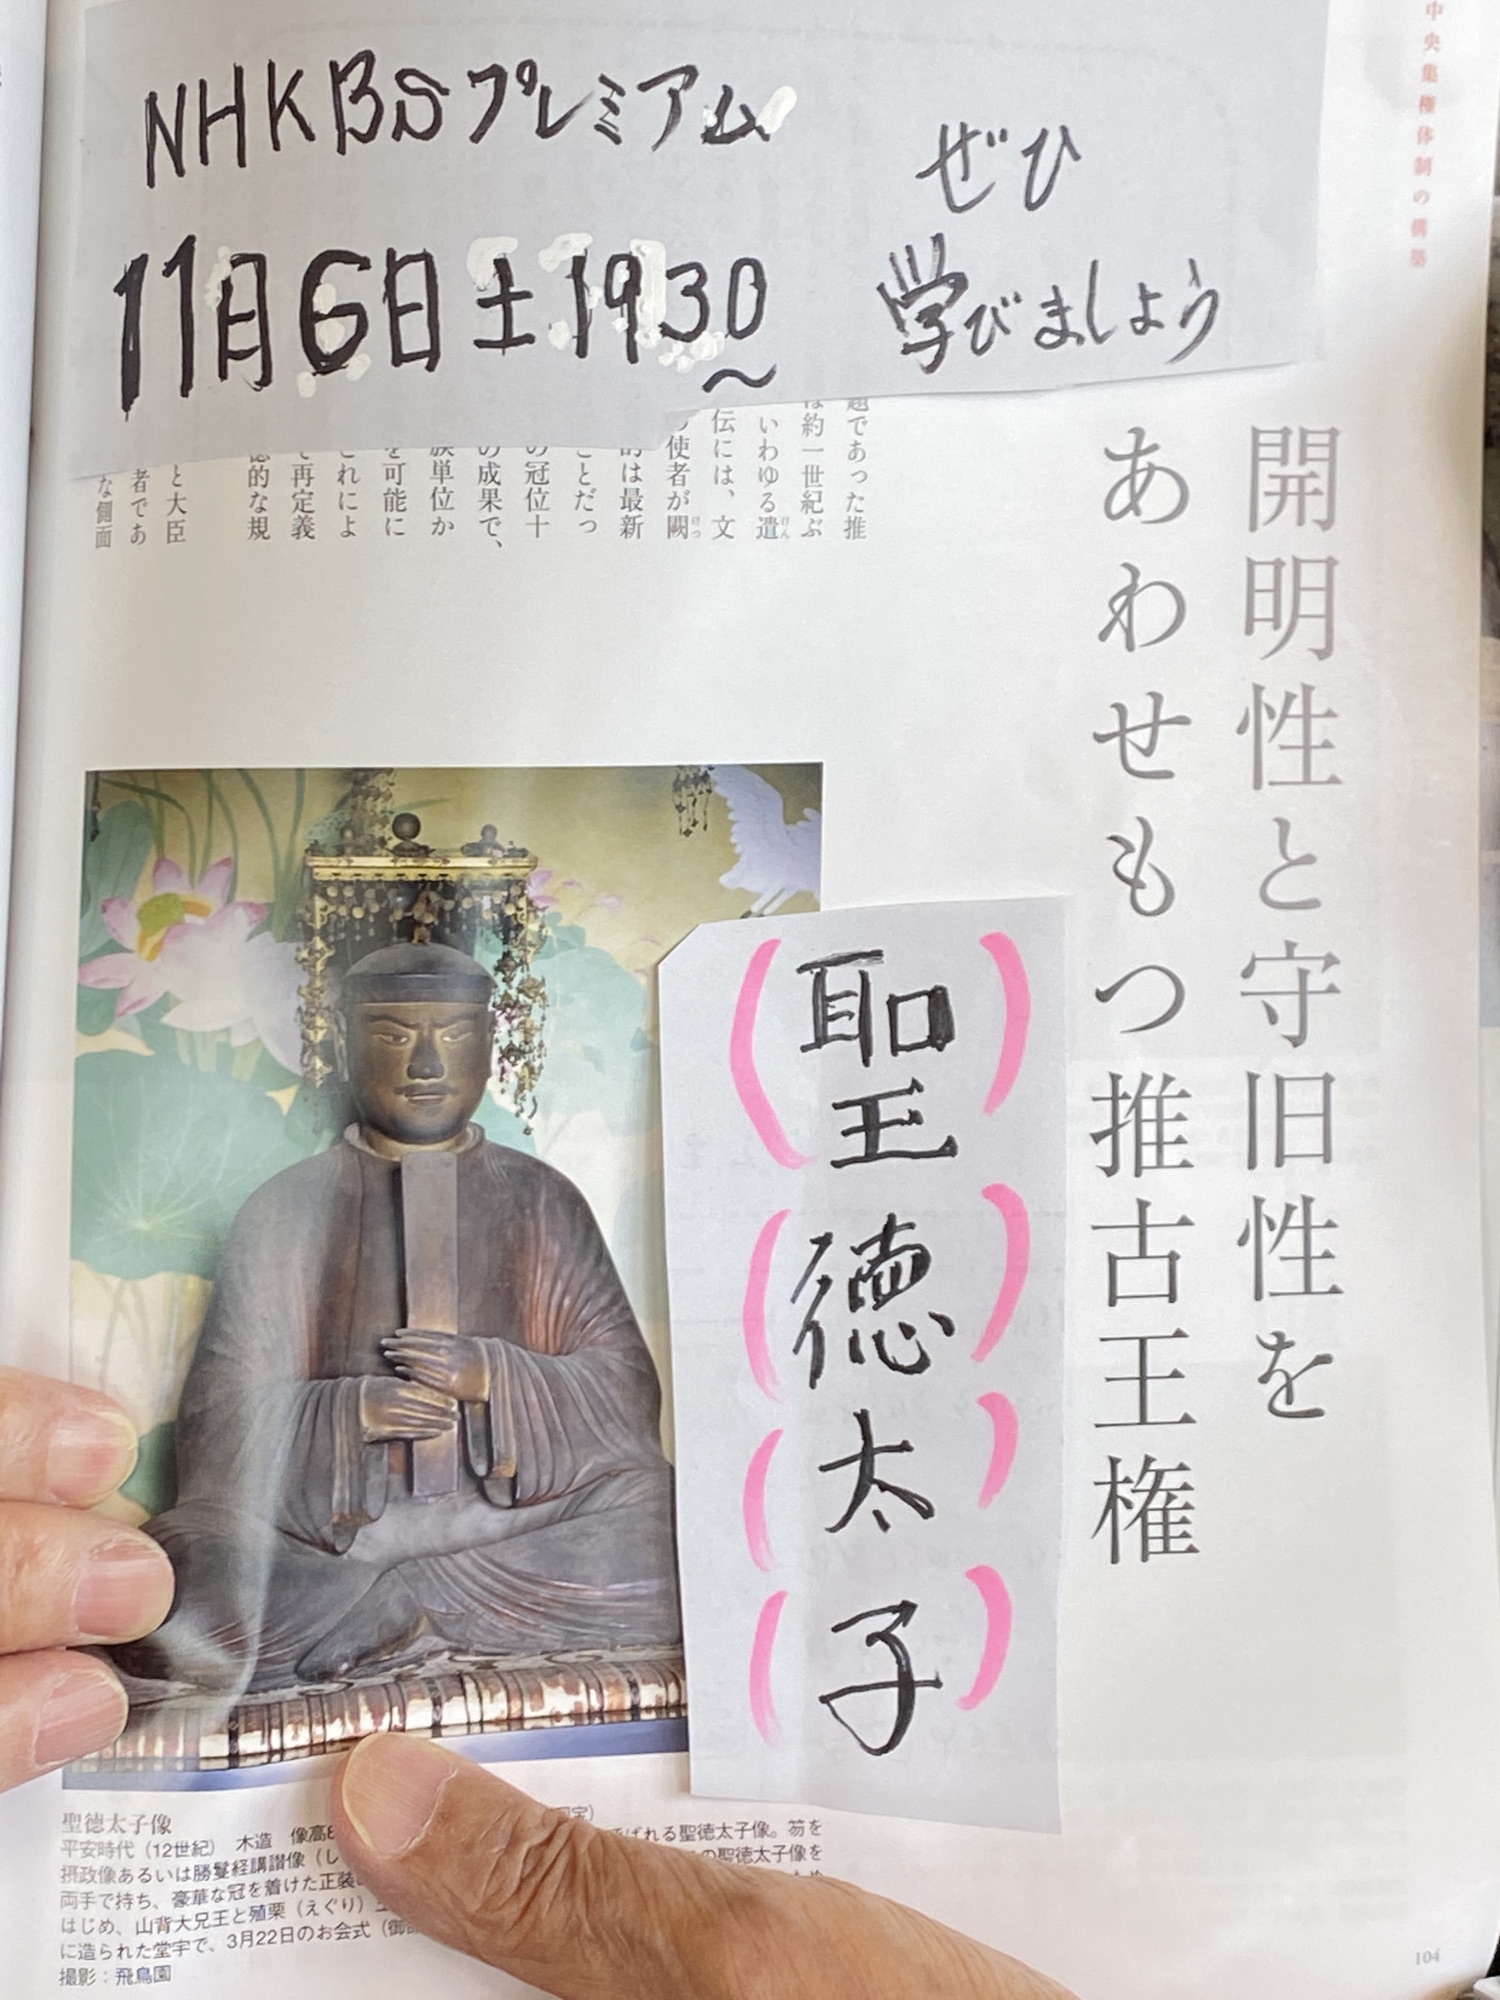 NHKBSプレミアム
11月6日土1930〜
ぜひ
学びましょう
中央集権体制の構築
開明性と守旧性を
あわせもつ推古王権
題であった推
は約一世紀ぶ
いわゆる遣
けん
伝には、文
使者が闕
けつ
的は最新
ことだっ
の冠位十
の成果で、
族単位か
を可能に
これによ
て再定義
徳的な規
と大臣
者であ
な側面
(聖)
(徳)
(太)
(子)
聖徳太子像
平安時代（12世紀） 木造 像高8
ばれる聖徳太子像。笏を
摂政像あるいは勝鬘経講讃像（し
の聖徳太子像を
両手で持ち、豪華な冠を着けた正装
はじめ、山背大兄王と殖栗（えぐり）王
に造られた堂宇で、3月22日のお会式（御
撮影：飛鳥園
104